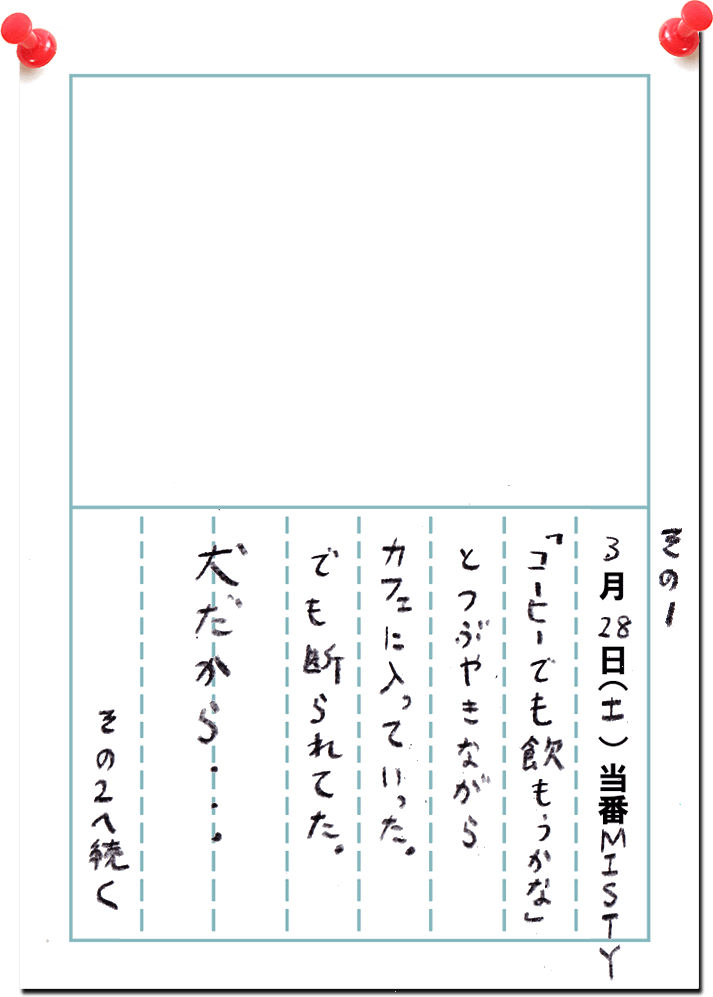 その1
3月28日(土)当番MISTY
「コーヒーでも飲もうかな」
とつぶやきながら
カフェに入っていった。
でも断られてた。
犬だから・・・
その2へ続く